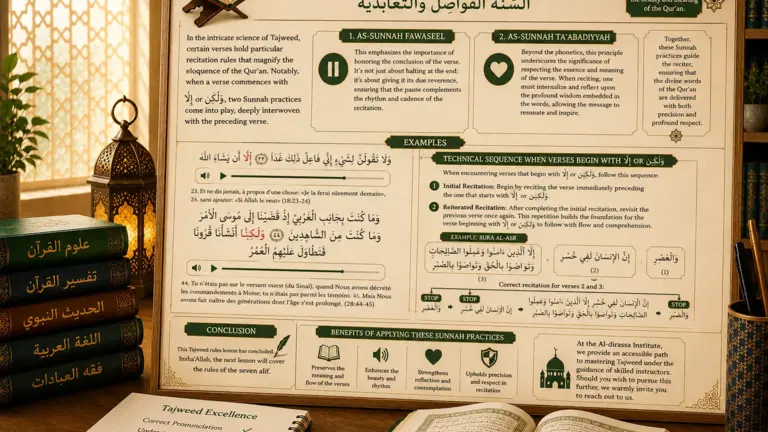 السُّنَّة الفَوَاصِل والتَّعَابُدِيَّة
the beauty and meaning
of the Qur'an.
In the intricate science of Tajweed,
certain verses hold particular
recitation rules that magnify the
eloquence of the Qur'an. Notably,
when a verse commences with
إِلَّا or وَلَٰكِن, two Sunnah practices
come into play, deeply interwoven
with the preceding verse.
1. AS-SUNNAH FAWASEEL
This emphasizes the importance of
honoring the conclusion of the verse.
It's not just about halting at the end;
it's about giving it its due reverence,
ensuring that the pause complements
the rhythm and cadence of the
recitation.
2. AS-SUNNAH TA'ABADIYYAH
Beyond the phonetics, this principle
underscores the significance of
respecting the essence and meaning
of the verse. When reciting, one
must internalize and reflect upon
the profound wisdom embedded in
the words, allowing the message to
resonate and inspire.
Together,
these Sunnah
practices guide
the reciter,
ensuring that
the divine words
of the Qur'an
are delivered
with both
precision and
profound respect.
EXAMPLES
وَلَا تَقُولَنَّ لِشَيْءٍ إِنِّي فَاعِلٌ ذَٰلِكَ غَدًا ﴿٢٣﴾ إِلَّا أَن يَشَاءَ اللَّهُ
23. Et ne dis jamais, à propos d'une chose: «Je la ferai sûrement demain»,
24. sans ajouter: «Si Allah le veut» (18:23-24)
وَمَا كُنتَ بِجَانِبِ الْغَرْبِيِّ إِذْ قَضَيْنَا إِلَىٰ مُوسَى الْأَمْرَ
وَمَا كُنتَ مِنَ الشَّاهِدِينَ ﴿٤٤﴾ وَلَٰكِنَّا أَنشَأْنَا قُرُونًا
فَتَطَاوَلَ عَلَيْهِمُ الْعُمُرُ
44. Tu n'étais pas sur le versant ouest (du Sinaï), quand Nous avons décrété
les commandements à Moïse; tu n'étais pas parmi les témoins. 45. Mais Nous
avons fait naître des générations dont l'âge s'est prolongé. (28:44-45)
TECHNICAL SEQUENCE WHEN VERSES BEGIN WITH إِلَّا or وَلَٰكِن
When encountering verses that begin with إِلَّا or وَلَٰكِن, follow this sequence:
1 Initial Recitation: Begin by reciting the verse immediately preceding
the one that starts with إِلَّا or وَلَٰكِن.
2 Reiterated Recitation: After completing the initial recitation, revisit the
previous verse once again. This repetition builds the foundation for the
verse beginning with إِلَّا or وَلَٰكِن to follow with flow and comprehension.
EXAMPLE: SURA AL-ASR
وَالْعَصْرِ
(1)
إِنَّ الْإِنسَانَ لَفِي خُسْرٍ
(2)
إِلَّا الَّذِينَ ءَامَنُوا وَعَمِلُوا الصَّالِحَاتِ
وَتَوَاصَوْا بِالْحَقِّ وَتَوَاصَوْا بِالصَّبْرِ
(3)
Correct recitation for verses 2 and 3:
STOP
وَالْعَصْرِ
STOP
إِنَّ الْإِنسَانَ لَفِي خُسْرٍ
إِنَّ الْإِنسَانَ لَفِي خُسْرٍ إِلَّا الَّذِينَ ءَامَنُوا وَعَمِلُوا
الصَّالِحَاتِ وَتَوَاصَوْا بِالْحَقِّ وَتَوَاصَوْا بِالصَّبْرِ
STOP
وَالْعَصْرِ
CONCLUSION
This Tajweed rules lesson has concluded.
Insha'Allah, the next lesson will cover
the rules of the seven alif.
BENEFITS OF APPLYING THESE SUNNAH PRACTICES
Preserves the
meaning and
flow of the verses
Enhances the
beauty and
rhythm
Strengthens
reflection and
contemplation
Upholds precision
and respect in
recitation
At the Al-dirassa Institute,
we provide an accessible path
to mastering Tajweed under the
guidance of skilled instructors.
Should you wish to pursue this
further, we warmly invite you
to reach out to us.
علوم القرآن
تفسير القرآن
الحديث النبوي
اللغة العربية
فقه العبادات
Tajweed Excellence
Correct Pronunciation